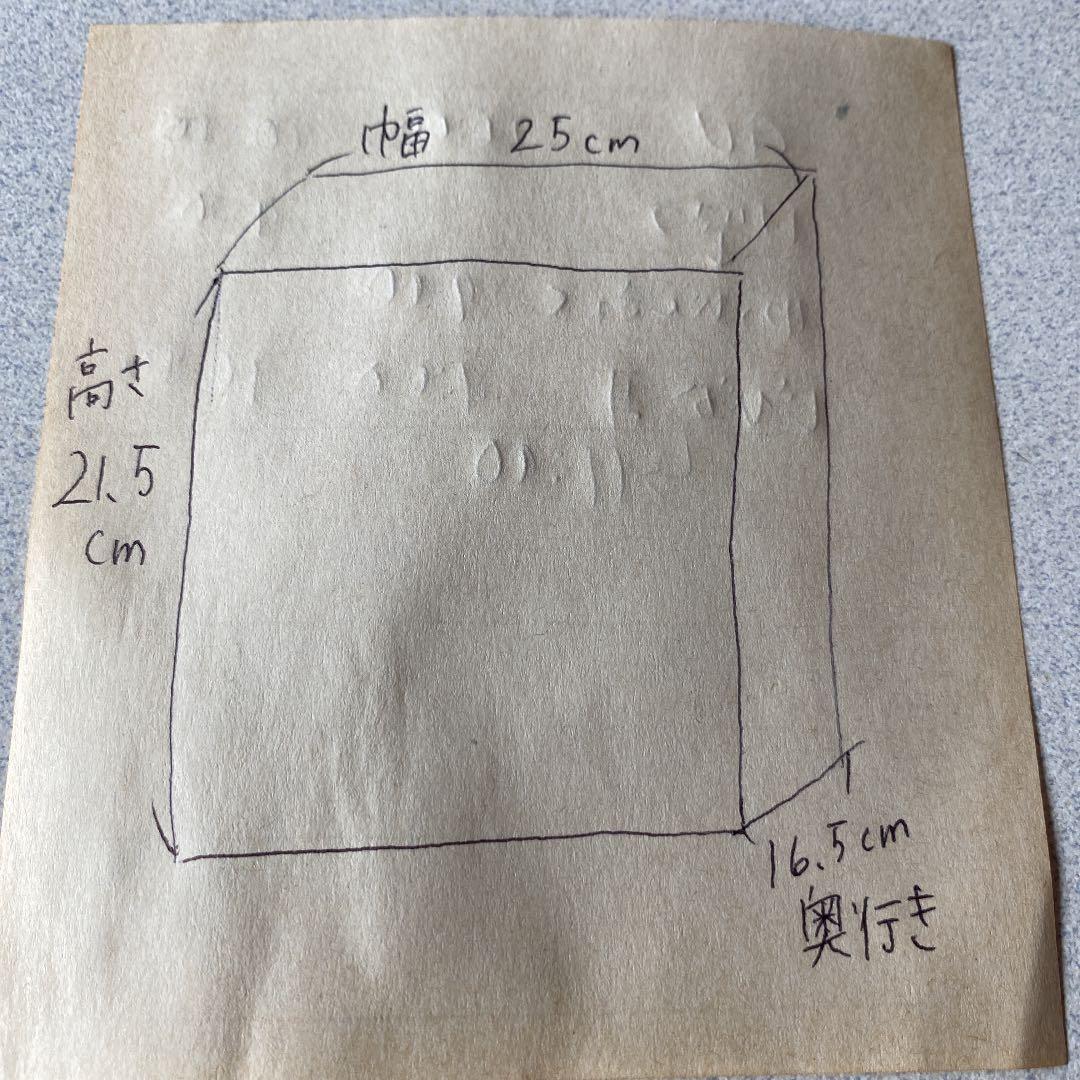 幅 25cm
高さ
21.5
cm
16.5cm
奥行き